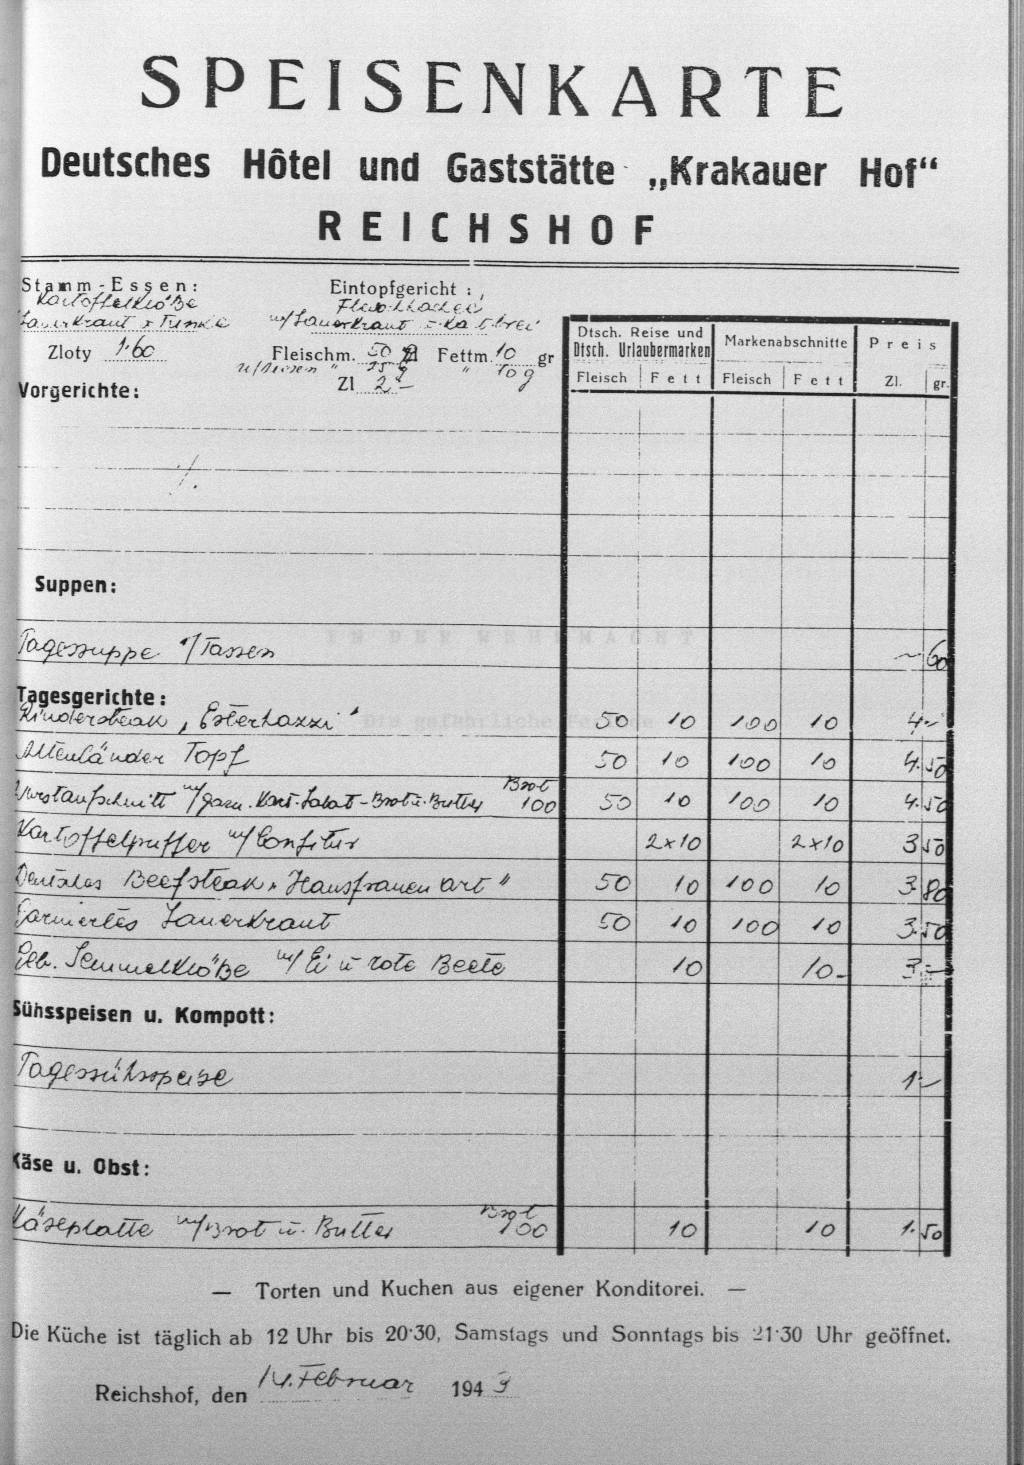 SPEISENKARTE
Deutsches Hôtel und Gaststätte „Krakauer Hof“
REICHSHOF
Stamm-Essen:
Kartoffelklöße
Sauerkraut Tunke
Zloty 1·60
Eintopfgericht :
w/Sauerkraut
Fleischm. 50 g Fettm. 10 gr
" 25 g " 10 g
Zl 2.-
Dtsch. Reise und Dtsch. Urlaubermarken Markenabschnitte Preis
Fleisch Fett Fleisch Fett Zl. gr.
Vorgerichte:
./.
Suppen:
IN DER WEHRMACHT
Tagessuppe 1/Tassen -.60
Tagesgerichte:
Rindersteak „Esterhazzi" 50 10 100 10 4.-
Altenländer Topf 50 10 100 10 4.50
Wurstaufschnitt w/garn. Kart. Salat - Brot u. Butter Brot 100 50 10 100 10 4.50
Kartoffelpuffer w/Confitür 2x10 2x10 3.50
Deutsches Beefsteak „Hausfrauen art" 50 10 100 10 3.80
Garniertes Sauerkraut 50 10 100 10 3.50
Geb. Semmelklöße w/Ei u rote Beete 10 10 3.-
Sühsspeisen u. Kompott:
Tagessühsspeise 1.-
Käse u. Obst:
Käseplatte w/Brot u. Butter Brot 100 10 10 1.50
— Torten und Kuchen aus eigener Konditorei. —
Die Küche ist täglich ab 12 Uhr bis 20·30, Samstags und Sonntags bis 21·30 Uhr geöffnet.
Reichshof, den 14. Februar 1943